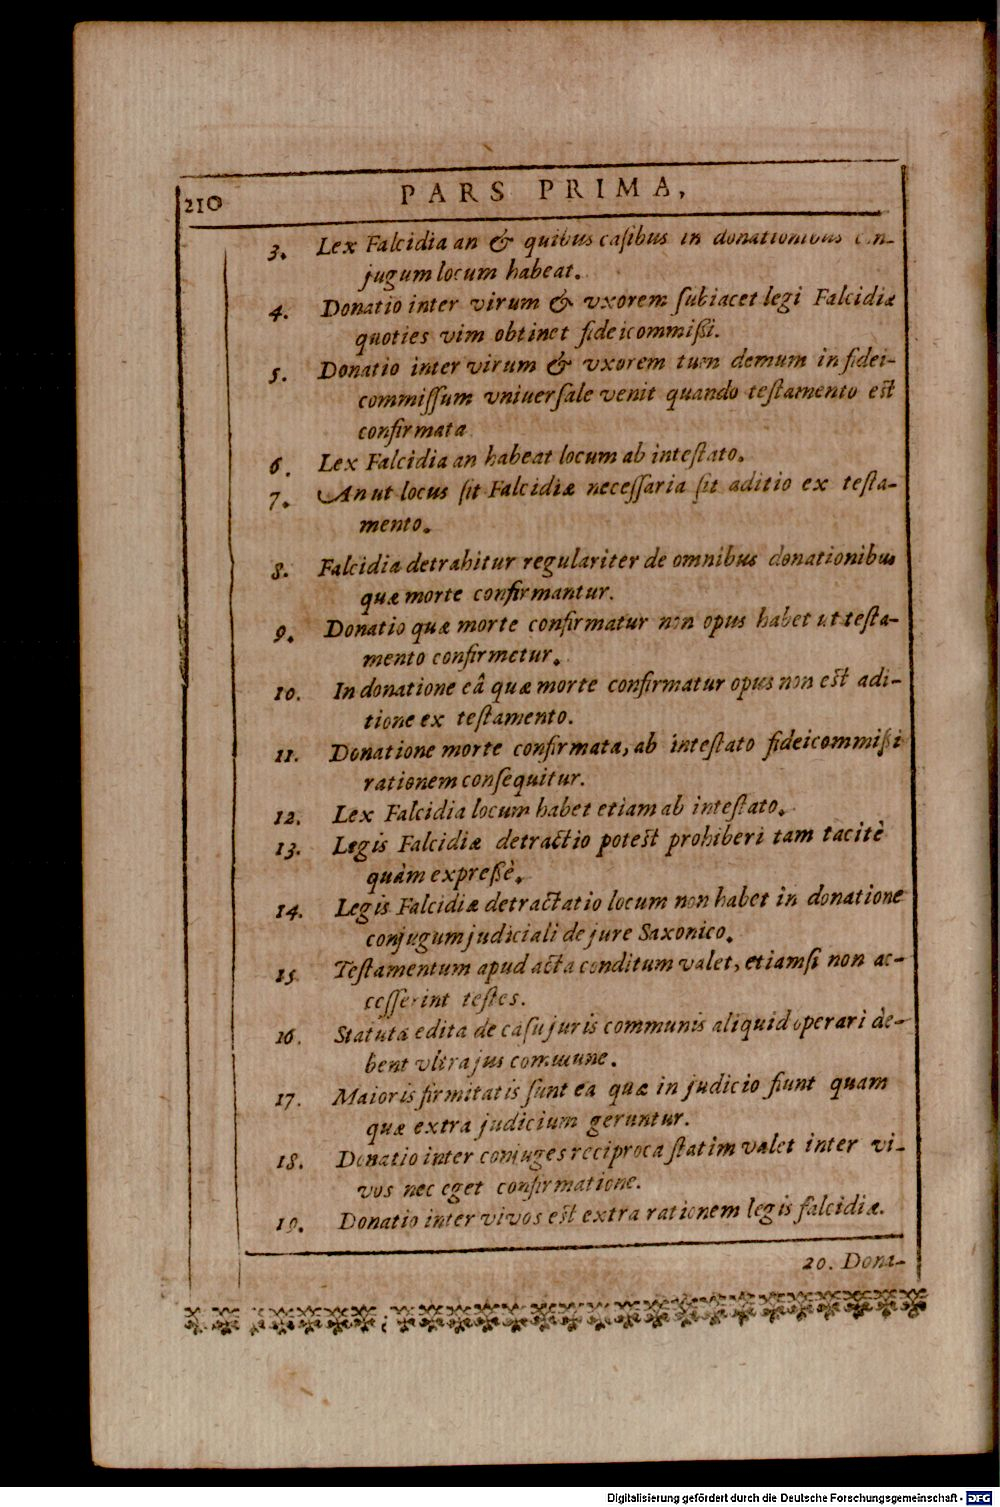 210
PARS PRIMA,
3. Lex Falcidia an & quibus casibus in donationibus con-
jugum locum habeat.
4. Donatio inter virum & vxorem subiacet legi Falcidiæ
quoties vim obtinet fideicommißi.
5. Donatio inter virum & vxorem tum demum in fidei-
commissum vniuersale venit quando testamento est
confirmata
6. Lex Falcidia an habeat locum ab intestato.
7. An ut locus sit Falcidiæ necessaria sit aditio ex testa-
mento.
8. Falcidia detrahitur regulariter de omnibus donationibus
quæ morte confirmantur.
9. Donatio quæ morte confirmatur non opus habet ut testa-
mento confirmetur.
10. In donatione eâ quæ morte confirmatur opus non est adi-
tione ex testamento.
11. Donatione morte confirmata, ab intestato fideicommißi
rationem consequitur.
12. Lex Falcidia locum habet etiam ab intestato.
13. Legis Falcidiæ detractio potest prohiberi tam tacitè
quàm expreßè.
14. Legis Falcidiæ detractatio locum non habet in donatione
conjugum judiciali de jure Saxonico.
15 Testamentum apud acta conditum valet, etiamsi non ac-
cesserint testes.
16. Statuta edita de casu juris communis aliquid operari de-
bent vltra jus commune.
17. Maioris firmitatis sunt ea quæ in judicio fiunt quam
quæ extra judicium geruntur.
18. Donatio inter coniuges reciproca statim valet inter vi-
vos nec eget confirmatione.
19. Donatio inter vivos est extra rationem legis falcidiæ.
20. Dona-
Digitalisierung gefördert durch die Deutsche Forschungsgemeinschaft - DFG